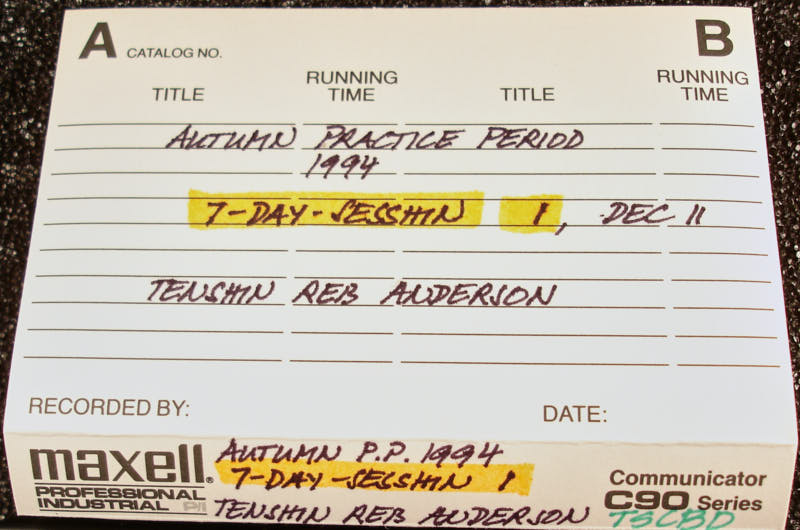 A CATALOG NO. B
TITLE RUNNING TIME TITLE RUNNING TIME
AUTUMN PRACTICE PERIOD
1994
7-DAY-SESSHIN 1, DEC 11
TENSHIN REB ANDERSON
RECORDED BY: DATE:
maxell®
PROFESSIONAL
INDUSTRIAL P/I
AUTUMN P.P. 1994
7-DAY-SESSHIN 1
TENSHIN REB ANDERSON
Communicator
C90 Series